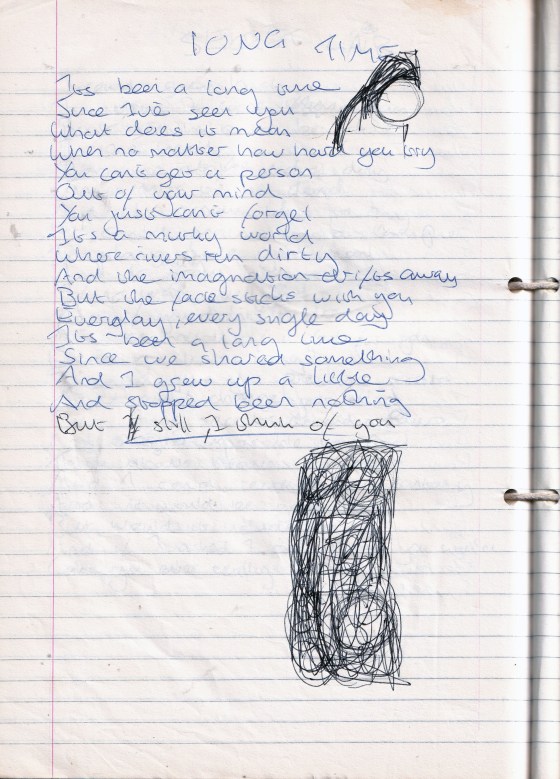 LONG TIME
Its been a long time
Since I've seen you
What does it mean
When no matter how hard you try
You cant get a person
Out of your mind
You just cant forget
Its a murky world
Where rivers run dirty
And the imagination drifts away
But the face sticks with you
Everyday, every single day
Its been a long time
Since we shared something
And I grew up a little
And stopped been nothing
But still, I think of you